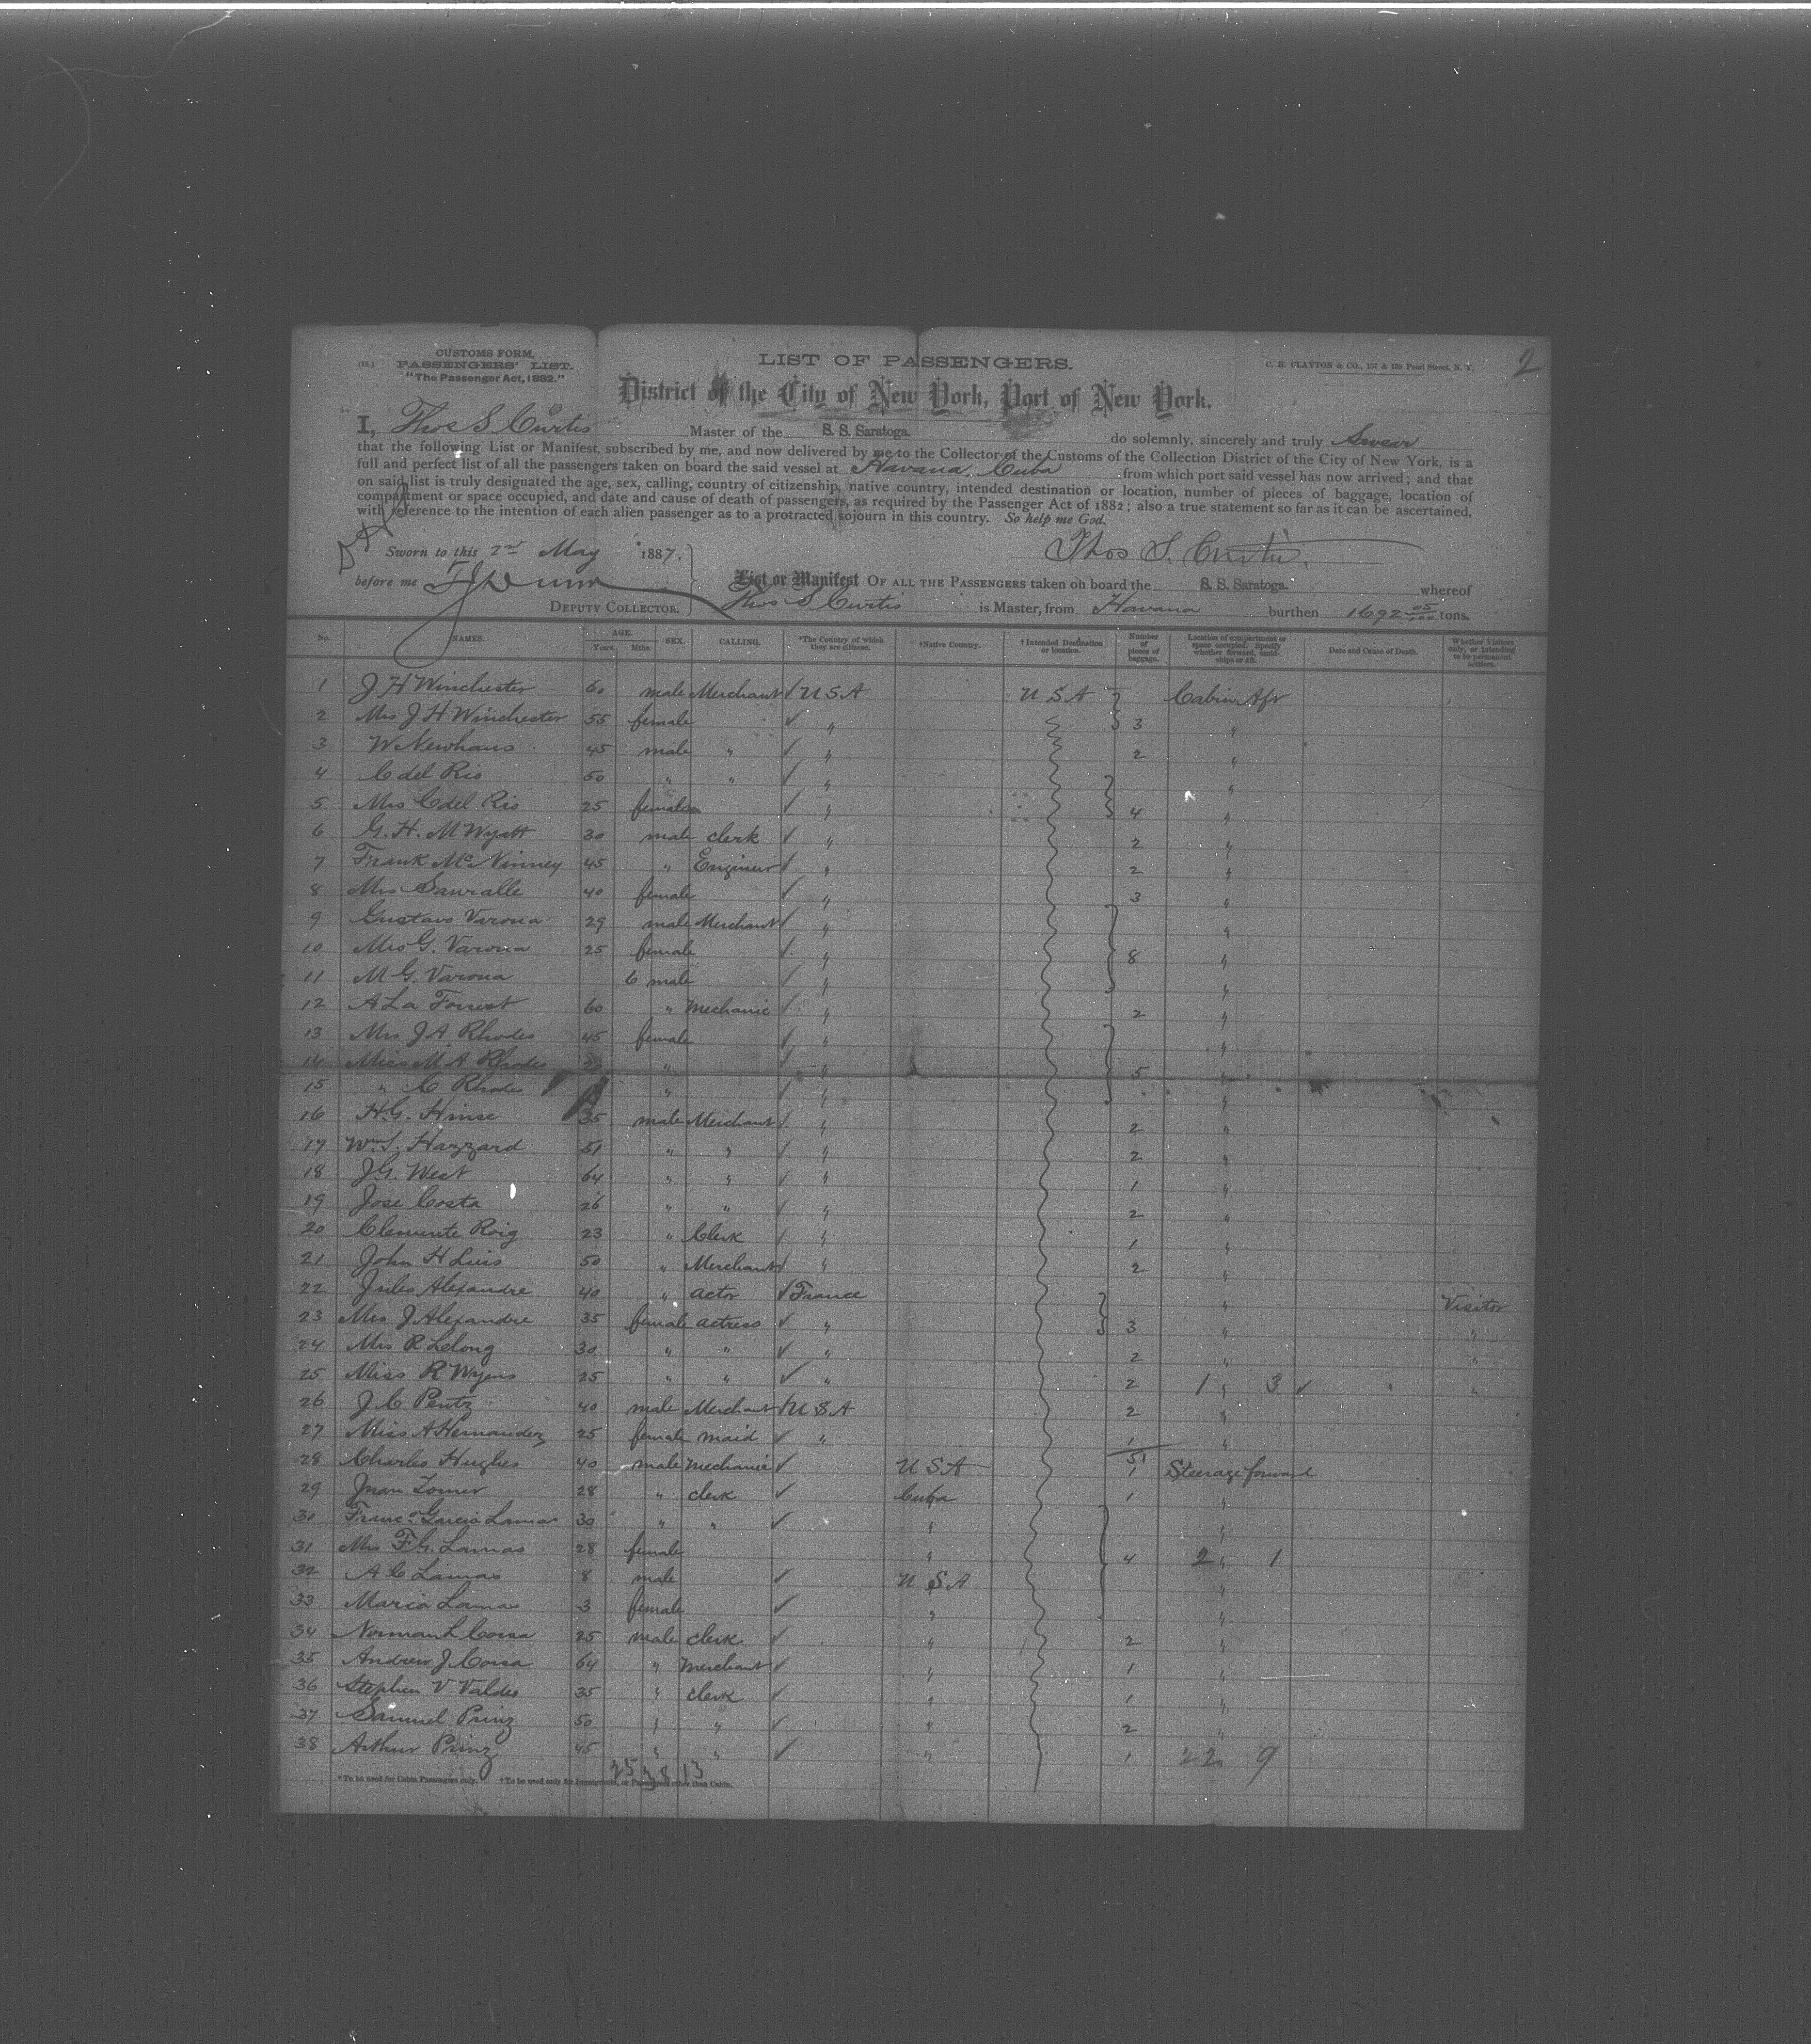 2
CUSTOMS FORM,
(15.) PASSENGERS' LIST.
"The Passenger Act, 1882."
LIST OF PASSENGERS.
C. H. CLAYTON & CO., 157 & 159 Pearl Street, N. Y.
District of the City of New York, Port of New York.
I, Thos S Curtis Master of the S. S. Saratoga. do solemnly, sincerely and truly Swear
that the following List or Manifest, subscribed by me, and now delivered by me to the Collector of the Customs of the Collection District of the City of New York, is a
full and perfect list of all the passengers taken on board the said vessel at Havana Cuba from which port said vessel has now arrived; and that
on said list is truly designated the age, sex, calling, country of citizenship, native country, intended destination or location, number of pieces of baggage, location of
compartment or space occupied, and date and cause of death of passengers, as required by the Passenger Act of 1882; also a true statement so far as it can be ascertained,
with reference to the intention of each alien passenger as to a protracted sojourn in this country. So help me God.
Sworn to this 2nd May 1887. Thos S. Curtis.
before me
List or Manifest OF ALL THE PASSENGERS taken on board the S. S. Saratoga. whereof
DEPUTY COLLECTOR. Thos S Curtis is Master, from Havana burthen 1692 05/100 tons.
No. NAMES. AGE. Years. Mths. SEX. CALLING. *The Country of which they are citizens. †Native Country. †Intended Destination or location. Number of pieces of baggage. Location of compartment or space occupied. Specify whether forward, amidships or aft. Date and Cause of Death. Whether Visitors only, or intending to be permanent settlers.
1 J H Winchester 60 male Merchant ✓ U S A U S A Cabin Aft
2 Mrs J H Winchester 55 female ✓ " 3 "
3 W Newhaus 45 male " ✓ " 2 "
4 C del Rio 50 " " ✓ " "
5 Mrs C del Rio 25 female ✓ " 4 "
6 G. H. M Wyatt 30 male clerk ✓ " 2 "
7 Frank McVinney 45 " Engineer ✓ " 2 "
8 Mrs Sauvalle 40 female ✓ " 3 "
9 Gustavo Varona 29 male Merchant ✓ " "
10 Mrs G. Varona 25 female ✓ " 8 "
11 M G. Varona 6 male ✓ " "
12 A La Forrest 60 " Mechanic ✓ " 2 "
13 Mrs J A Rhodes 45 female ✓ " "
14 Miss M A Rhodes " ✓ " 5 "
15 " C Rhodes " ✓ " "
16 H. G. Hinse 35 male Merchant ✓ " 2 "
17 Wm S. Hazzard 51 " " ✓ " 2 "
18 J. G. West 64 " " ✓ " 1 "
19 Jose Costa 26 " " ✓ " 2 "
20 Clemente Roig 23 " Clerk ✓ " 1 "
21 John H Luis 50 " Merchant ✓ " 2 "
22 Jules Alexandre 40 " actor ✓ France " Visitor
23 Mrs J Alexandre 35 female actress ✓ " 3 " "
24 Mrs R Lelong 30 " " ✓ " 2 " "
25 Miss R Wyens 25 " " ✓ " 2 1 " 3 ✓ "
26 J. C Pentz 40 male Merchant ✓ U S A 2 "
27 Miss A Hernandez 25 female maid ✓ " 1 "
51
28 Charles Hughes 40 male Mechanic ✓ U S A 1 Steerage forward
29 Juan 28 " clerk ✓ Cuba 1 "
30 Franco Garcia Lamas 30 " " ✓ " "
31 Mrs F. G. Lamas 28 female " 4 2 " 1
32 A C Lamas 8 male ✓ U S A "
33 Maria Lamas 3 female ✓ " "
34 Norman L Corsa 25 male clerk ✓ " 2 "
35 Andrew J. Corsa 64 " Merchant ✓ " 1 "
36 Stephen V Valdes 35 " clerk ✓ " 1 "
37 Samuel Prinz 50 " " ✓ " 2 "
38 Arthur Prinz 45 " " ✓ " 1 22 9
25 38 13
* To be used for Cabin Passengers only. † To be used only for Immigrants, or Passengers other than Cabin.